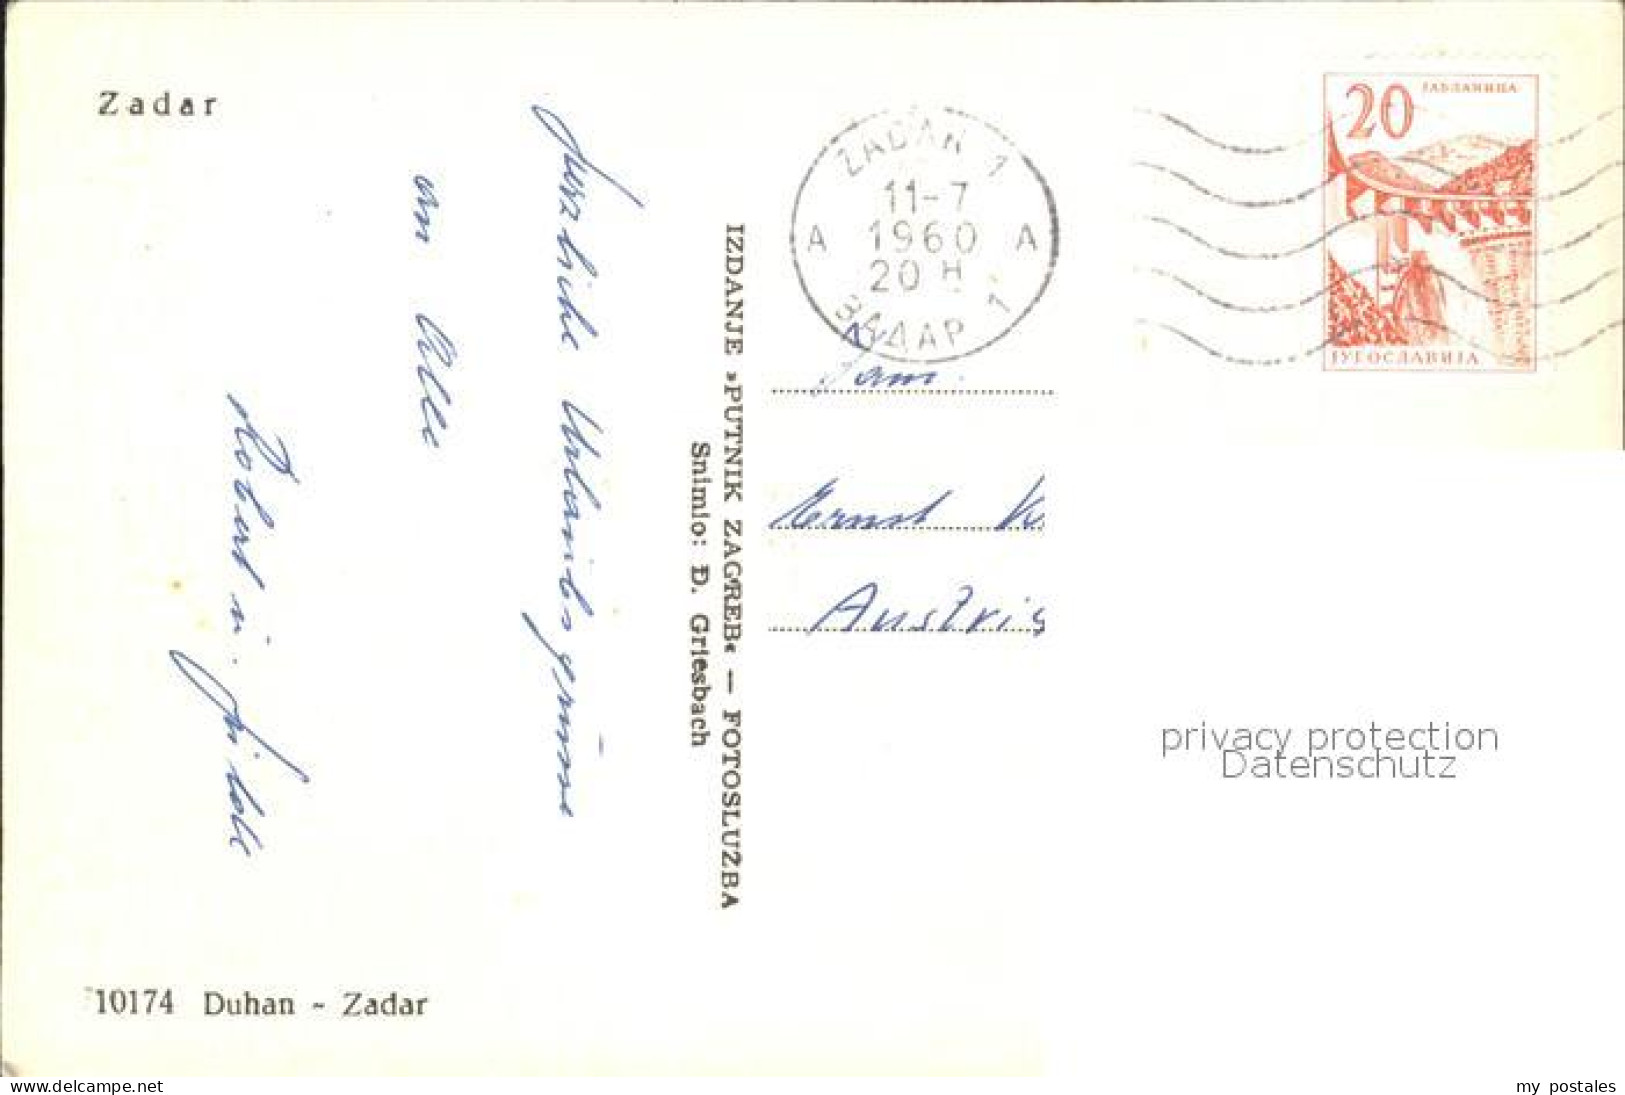 Zadar
Herzliche Urlaubsgrüsse
an Alle
Robert u.
10174 Duhan - Zadar
IZDANJE »PUTNIK ZAGREB« — FOTOSLUŽBA
Snimio: Đ. Griesbach
ZADAR 1
11-7
A 1960 A
20 H
ЗАДАР 1
20 ЈАБЛАНИЦА
ЈУГОСЛАВИЈА
Fam.
Ernst
Austria
privacy protection
Datenschutz
www.delcampe.net
my postales